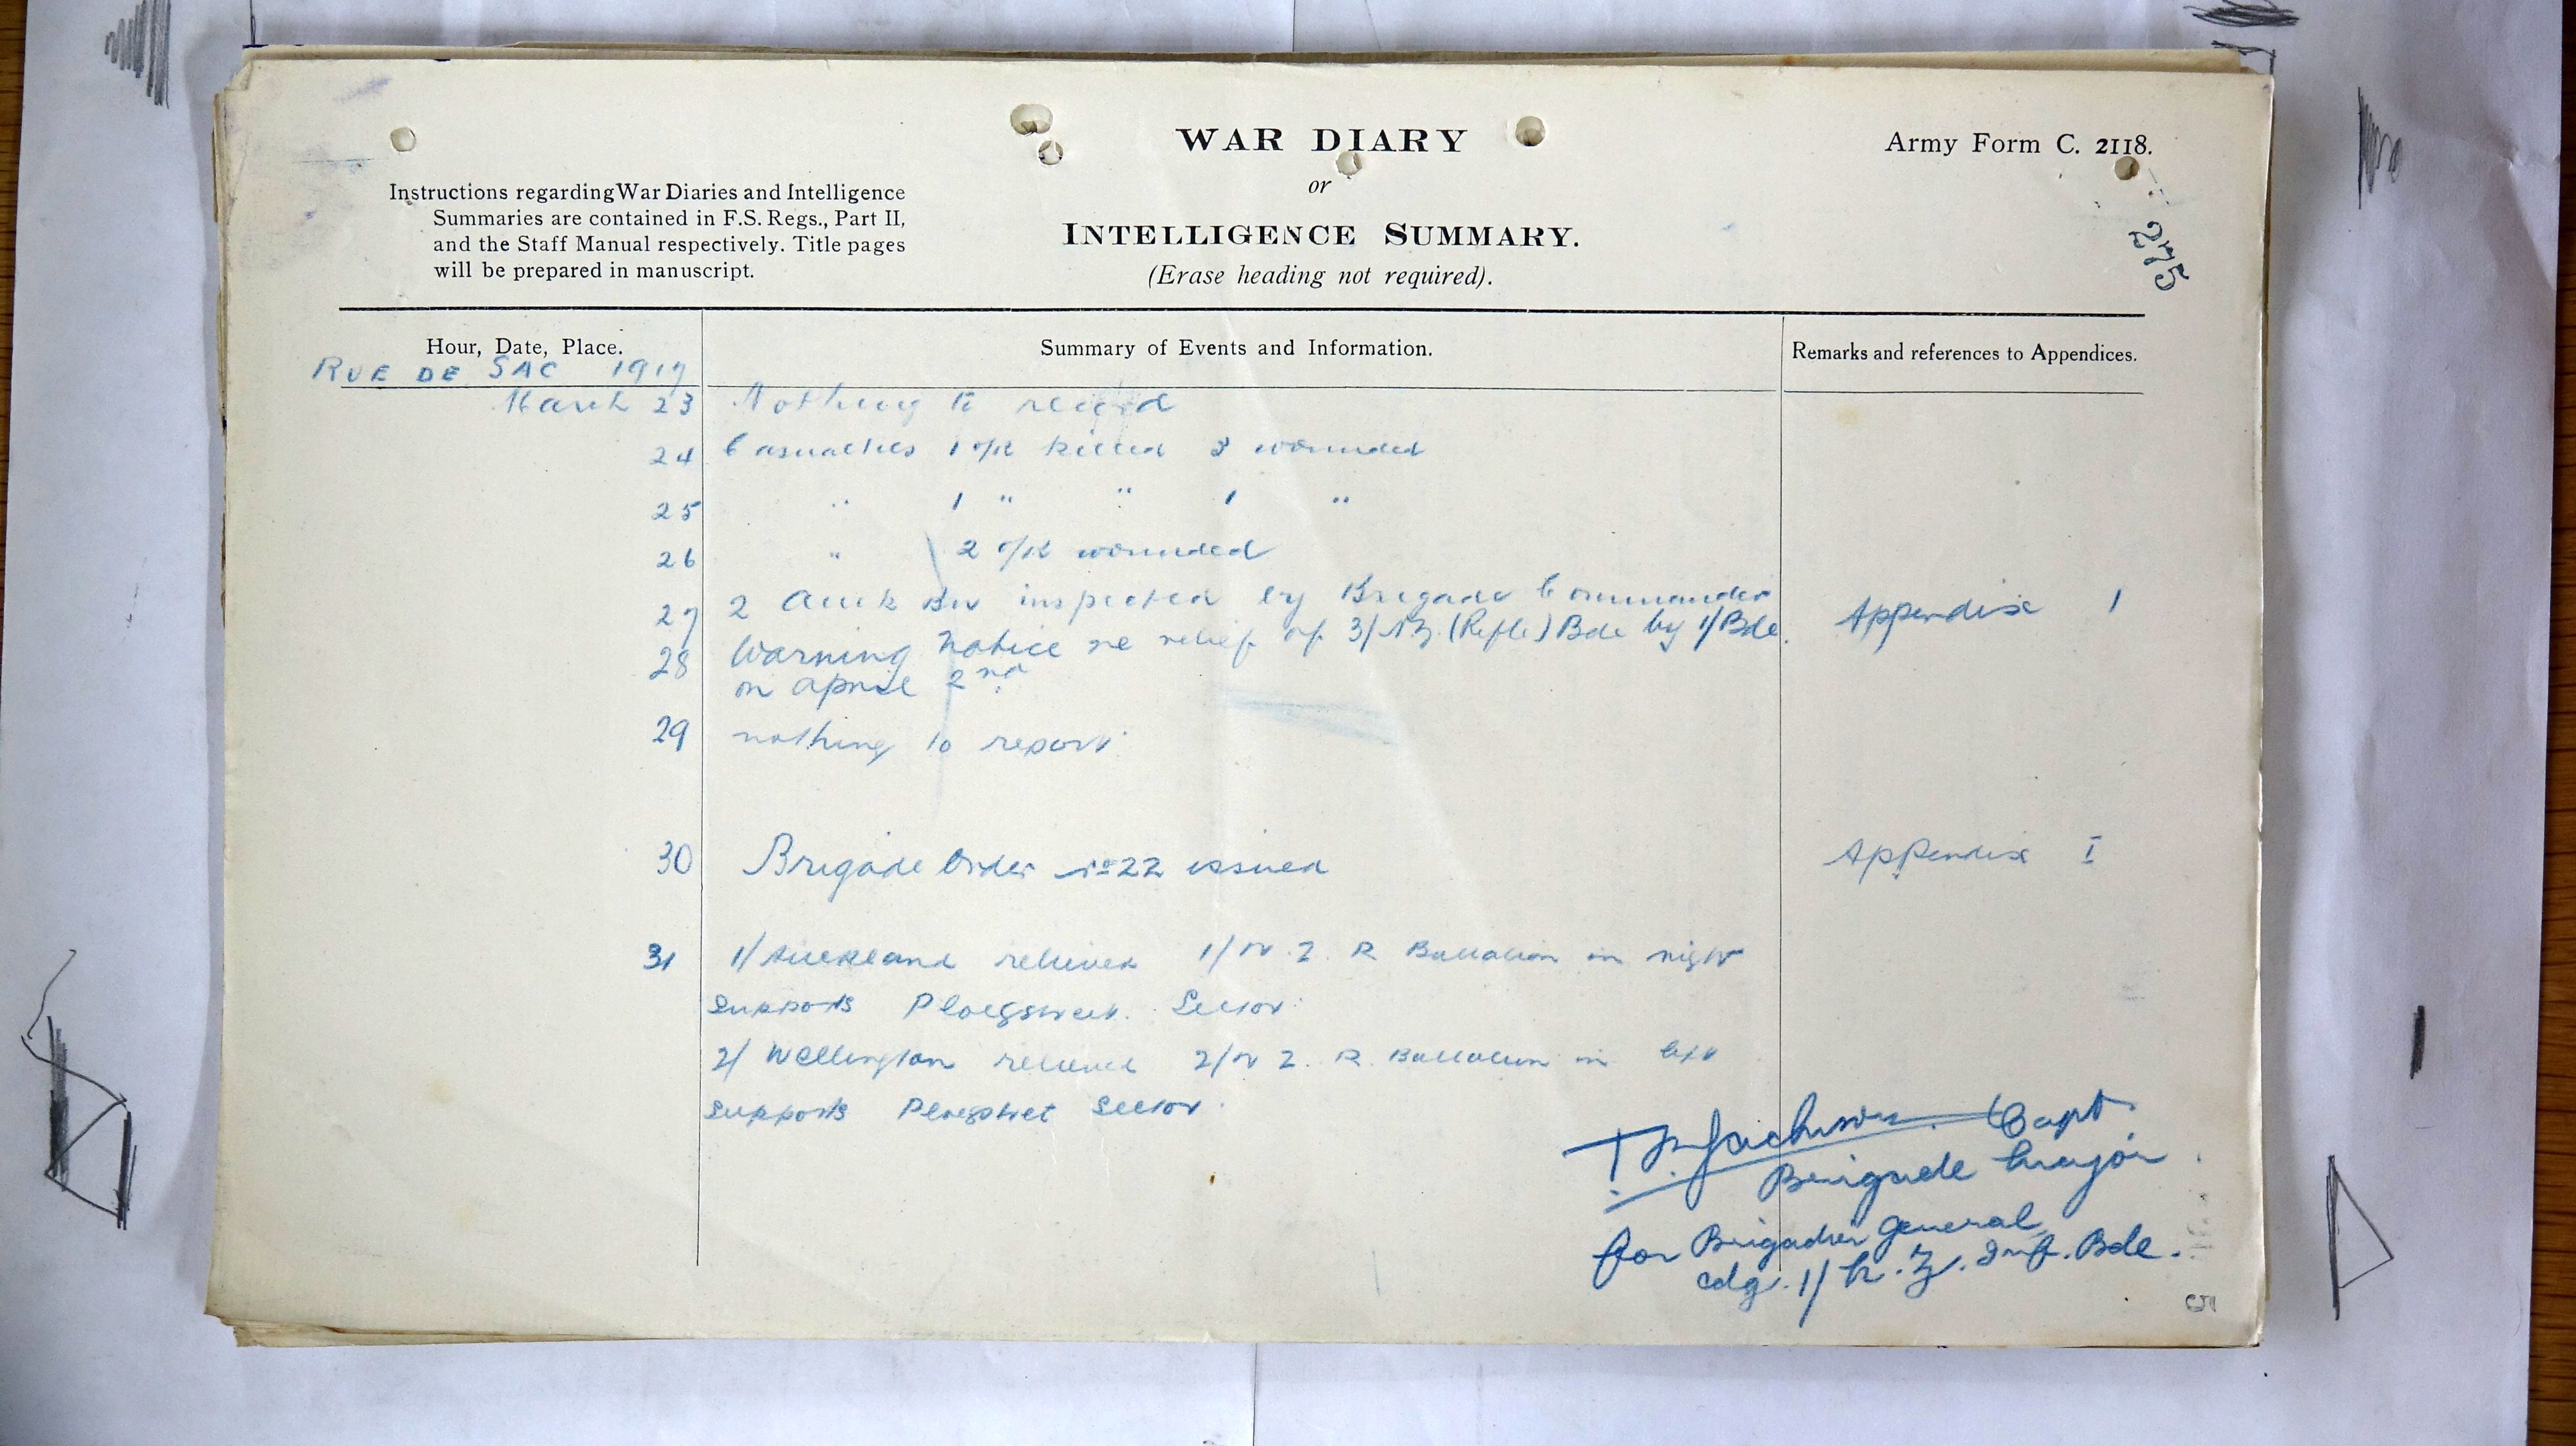 WAR DIARY
or
INTELLIGENCE SUMMARY.
(Erase heading not required).
Army Form C. 2118.
275
Instructions regarding War Diaries and Intelligence
Summaries are contained in F.S. Regs., Part II,
and the Staff Manual respectively. Title pages
will be prepared in manuscript.
Hour, Date, Place.
Summary of Events and Information.
Remarks and references to Appendices.
RUE DE SAC 1917
March 23 Nothing to record
24 Casualties 1 O/R killed 3 wounded
25 " 1 " " 1 "
26 " 2 O/R wounded
27 2 Auck Bn inspected by Brigade Commander
28 Warning Notice re relief of 3/N.Z. (Rifle) Bde by 1/Bde. Appendix 1
on April 2nd
29 nothing to report
30 Brigade Order No 22 issued Appendix I
31 1/Auckland relieved 1/N.Z.R Battalion in right
supports Ploegstreet Sector.
2/ Wellington relieved 2/N Z. R. Battalion in left
supports Ploegstret Sector.
Capt
Brigade Major
for Brigadier General
cdg. 1/ N.Z. Inf. Bde.
5